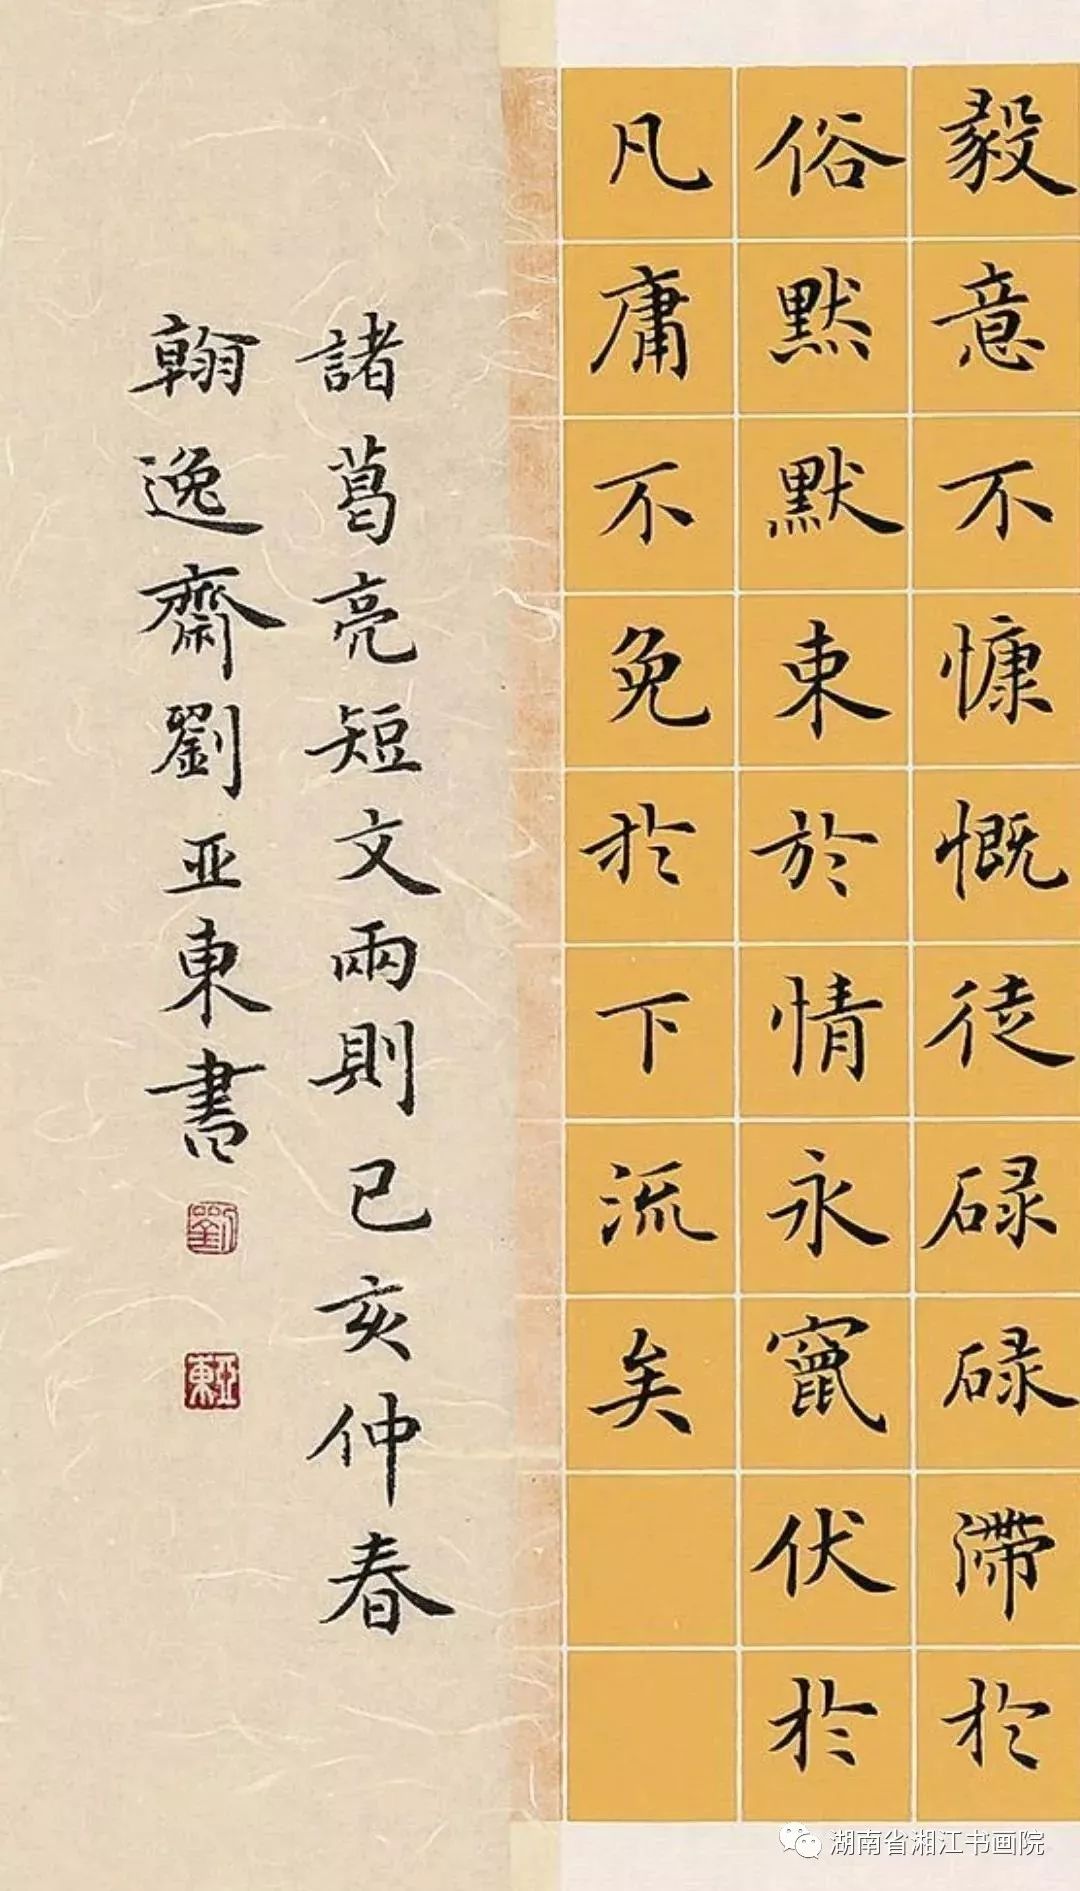 毅意不慷慨徒碌碌滯於
俗默默束於情永竄伏於
凡庸不免於下流矣
諸葛亮短文兩則己亥仲春
翰逸齋劉亚東書
劉
亞東
湖南省湘江书画院